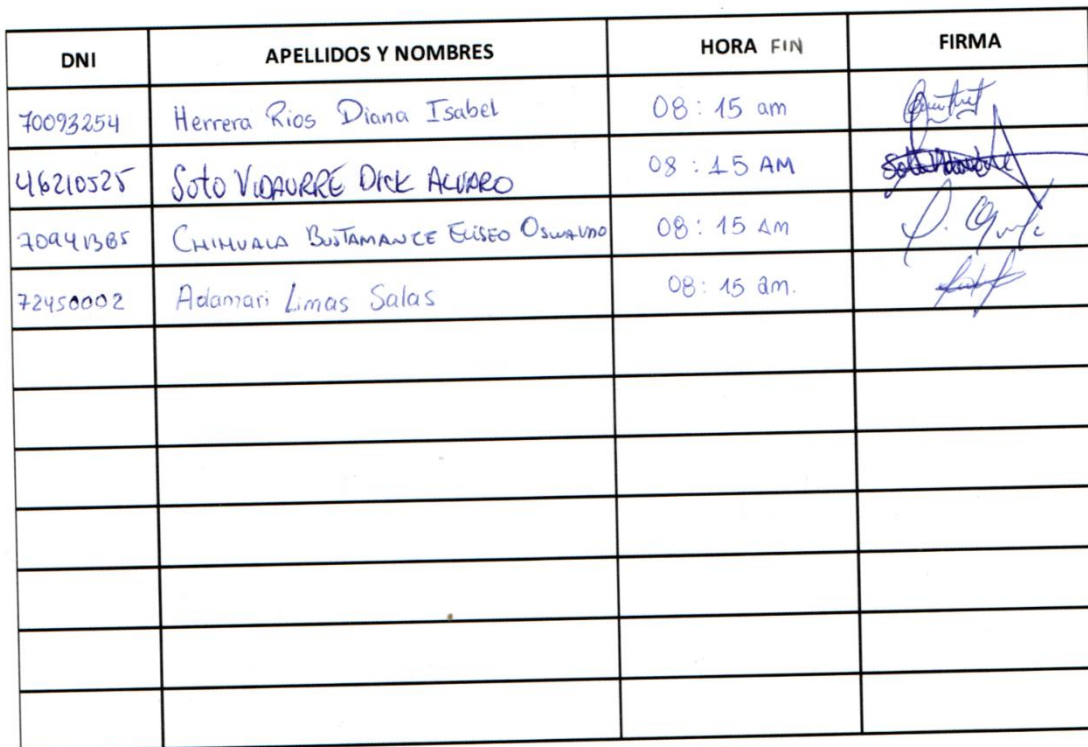 DNI APELLIDOS Y NOMBRES HORA FIN FIRMA
70093254 Herrera Rios Diana Isabel 08:15 am
46210525 Soto VIDAURRE DICK ALVARO 08:15 AM
70941365 CHIHUALA BUSTAMANTE ELISEO OSWALDO 08:15 AM
72450002 Adamari Limas Salas 08:15 am.